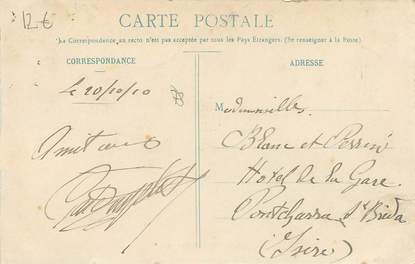 12€
CARTE POSTALE
La Correspondance au recto n'est pas acceptée par tous les Pays Etrangers. (Se renseigner à la Poste).
CORRESPONDANCE
ADRESSE
Le 20/10/10
Mademoiselles
Blanc et Perrin
Amitiés
Hôtel de la Gare
Pontcharra St Bréda
(Isère)